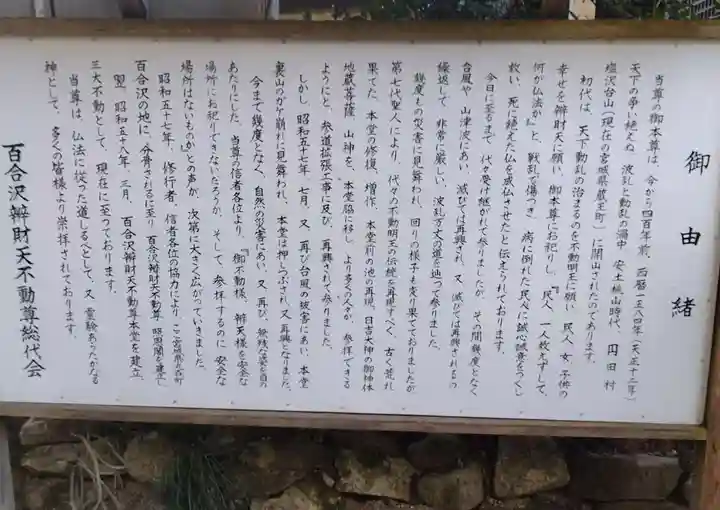 御由緒
当尊の御本尊は、今から四百年前、西暦一五八四年(天正十二年)
天下の争い絶えぬ 波乱と動乱の渦中 安土桃山時代、円田村
塩沢台山(現在の宮城県蔵王町)に開山されたのであります。
初代は、天下動乱の治まるのを不動明王に願い 民人、女、子供の
幸せを辨財天に願い、御本尊にお祀りし、『民人、一人救えずして、
何が仏法か』と、戦乱で傷つき、病に倒れた民人に誠心誠意をつくし
救い、死に絶えた仏を成仏させたと伝えられております。
今日に至るまで、代々受け継がれて参りましたが、その間幾度となく
台風や、山津波にあい、滅びては再興され、又、滅びては再興されるの
繰返しで、非常に厳しい、波乱万丈の道を辿って参りました。
幾度もの災害に見舞われ、回りの様子も変り果てておりましたが
第七代聖人により、代々の不動明王の伝統を再興すべく、古く荒れ
果てた、本堂の修復、増作、本堂前の池の再現、日吉大神の御神体
地蔵菩薩、山神を、本堂脇に移し、より多くの人々が、参拝できる
ようにと、参道拡張工事に及び、再興されて参りました。
しかし、昭和五十七年、七月、又、再び台風の被害にあい、本堂
裏山のがけ崩れに見舞われ、本堂は押しつぶされ、又、再興となりました。
今まで幾度となく、自然の災害にあい、又、再び、無残な姿を目の
あたりにした。当尊の信者各位より、『御不動様、辨天様を安全な
場所にお祀りできないだろうか、そして、参拝するのに、安全な
場所はないものか』との声が、次第に大きく広がっていきました。
昭和五十七年、修行者、信者各位の協力により、ここ宮城県丸森町
百合沢の地に、分骨されるに至り、百合沢辨財天不動尊、昭明閣を建立し
翌、昭和五十八年、三月、百合沢辨財天不動尊本堂を建立、
三大不動として、現在に至っております。
当尊は、仏法に従った道しるべとして、又、霊験あらたかなる
神として、多くの皆様より崇拝されております。
百合沢辨財天不動尊総代会